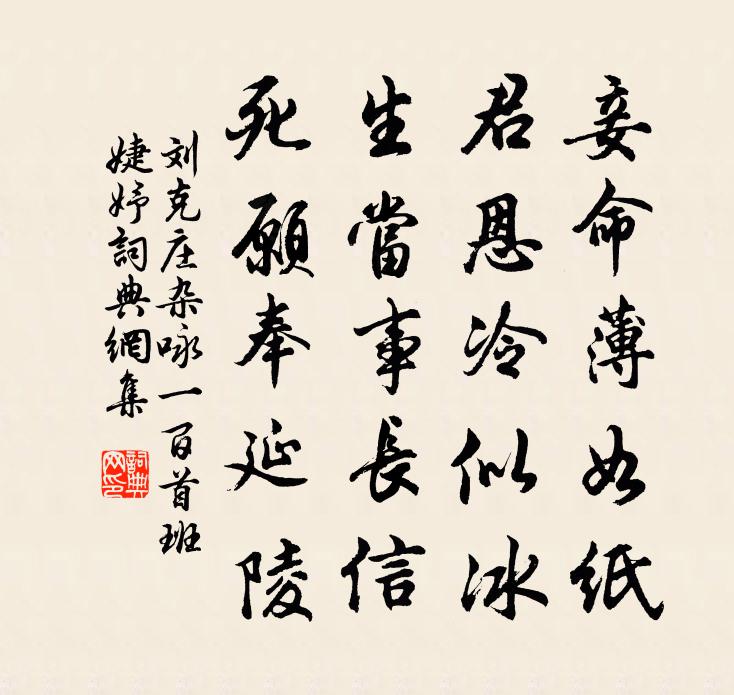 妾命薄如纸
君恩冷似冰
生當事長信
死願奉延陵
刘克庄杂咏一百首班
婕妤詞典網集
詞典
网印